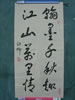 翰墨千秋趣
江山万里情